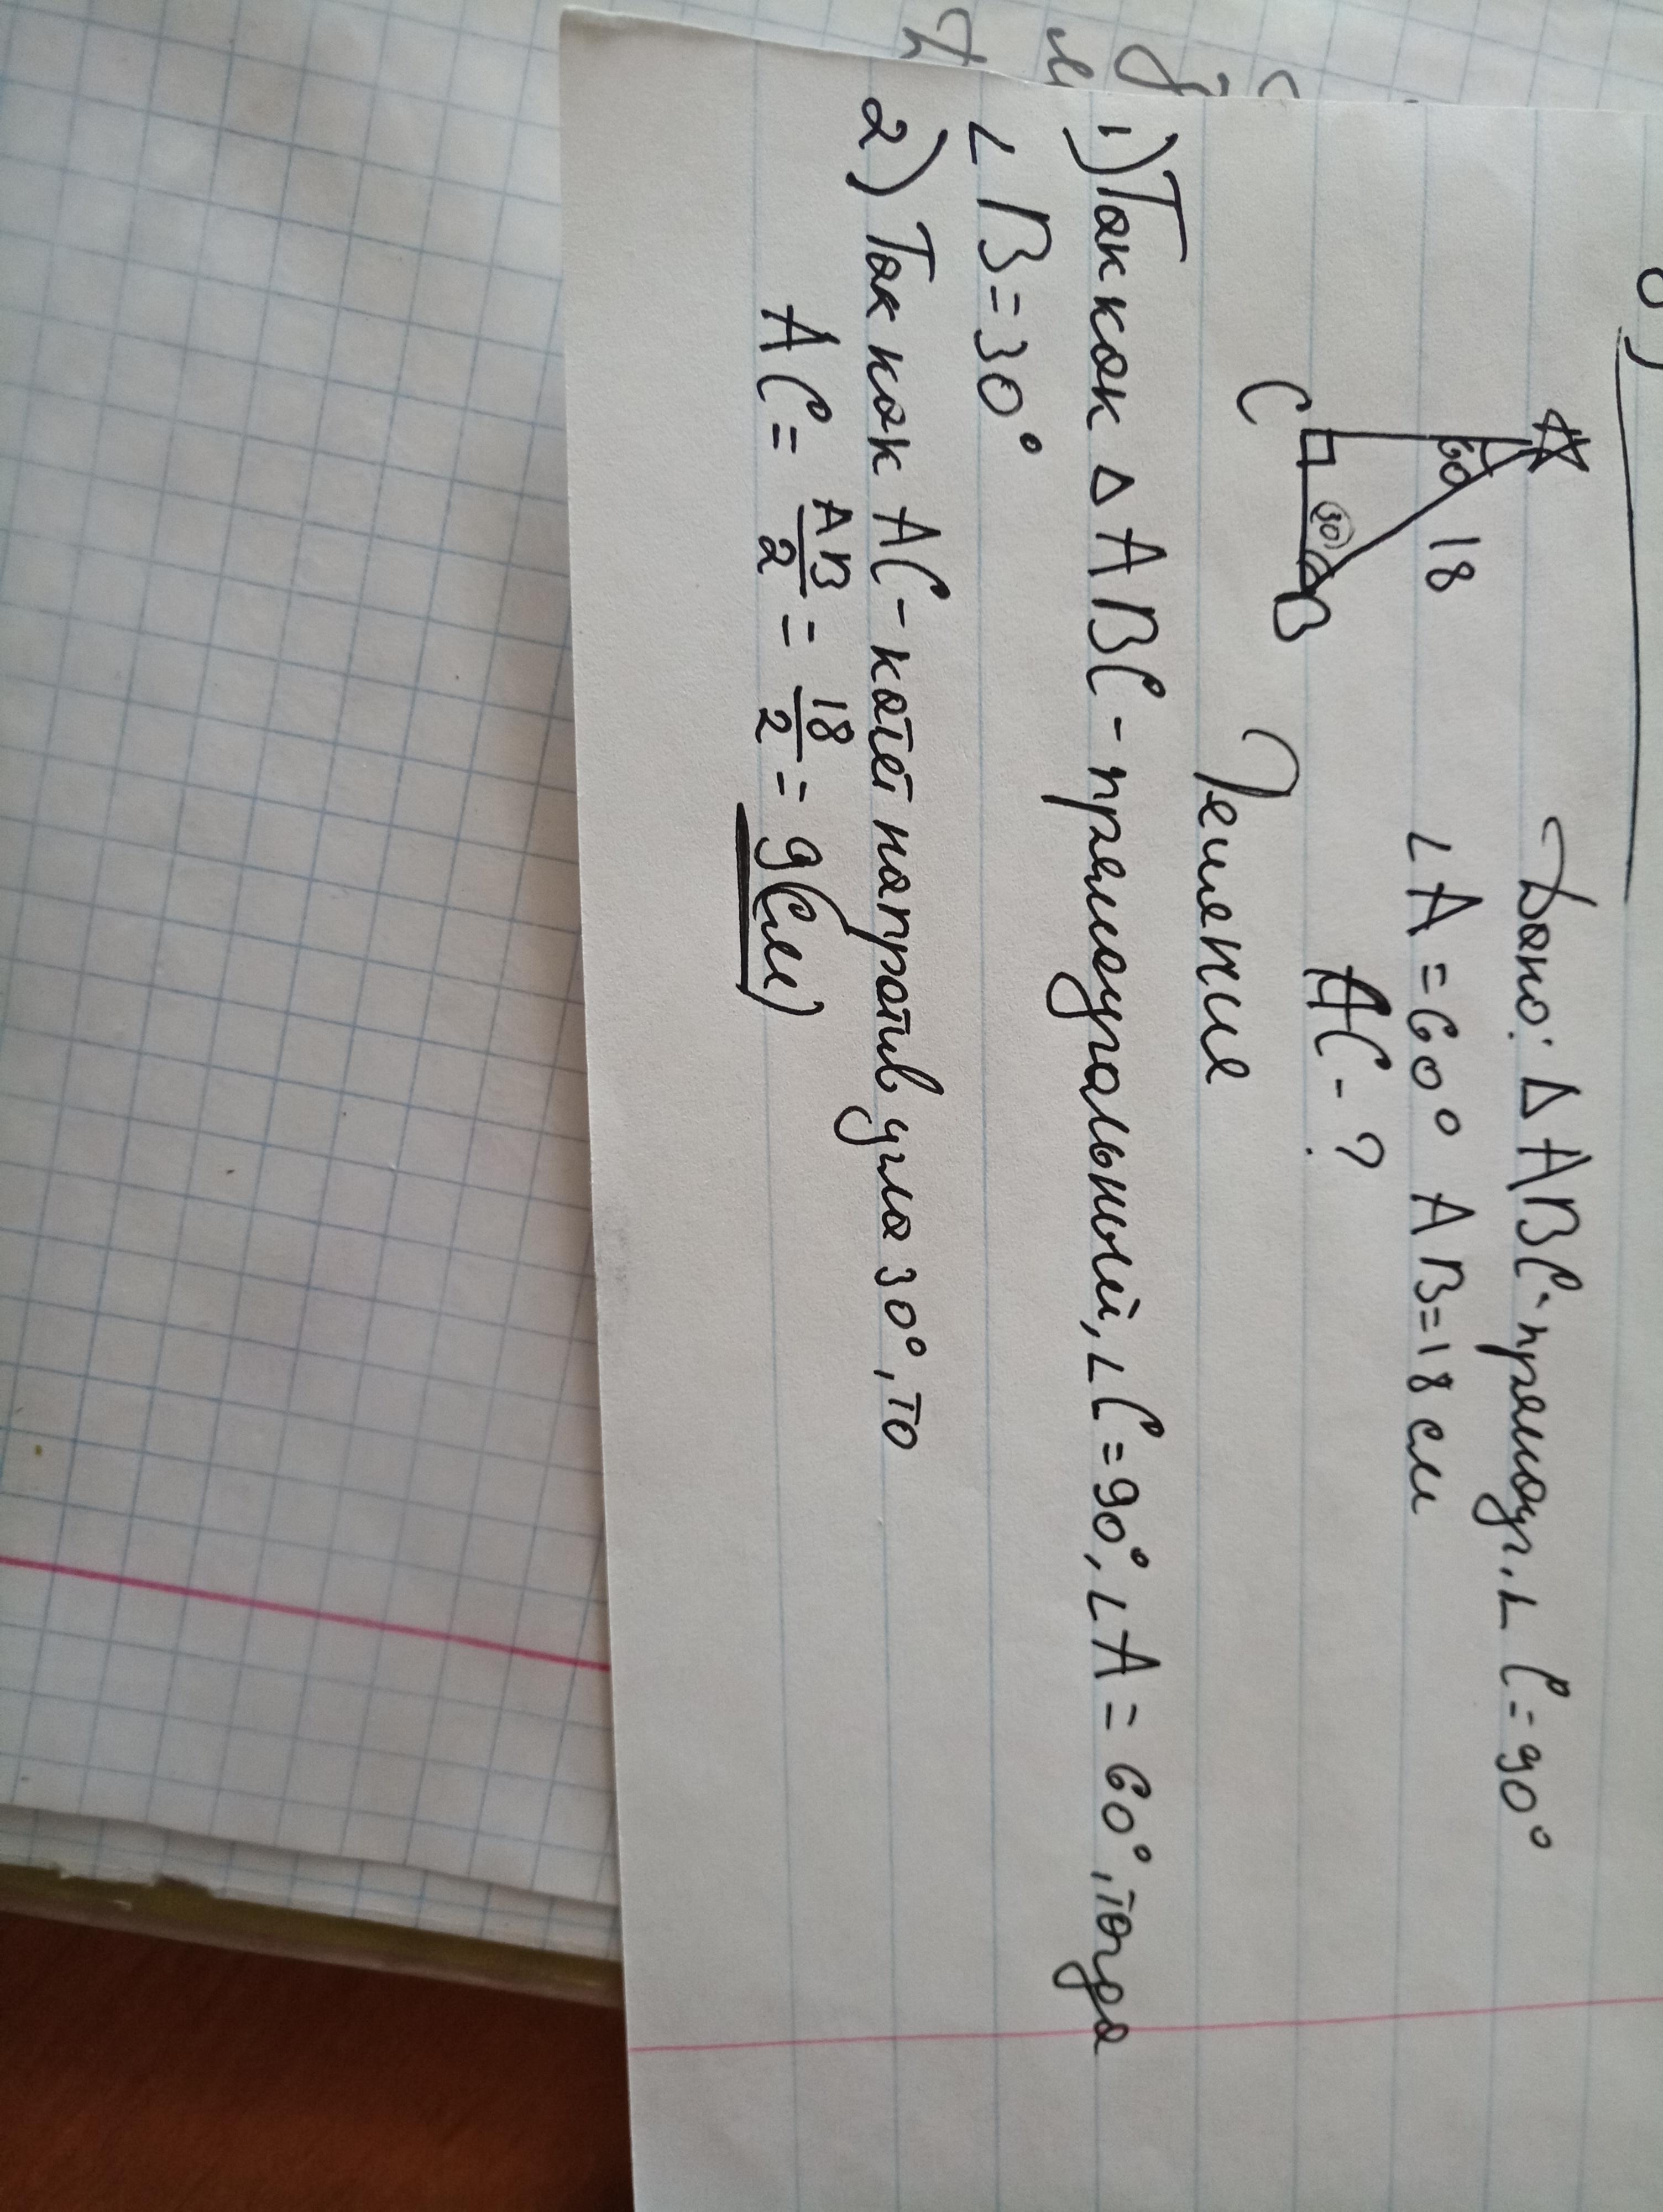 Дано: △ ABC - прямоуг. ∠ C = 90°
∠ A = 60° AB = 18 см
AC - ?
A
60
18
30
C
B
Решение
1) Так как △ ABC - прямоугольный, ∠C = 90°, ∠A = 60°, тогда
∠ B = 30°
2) Так как AC - катет напротив угла 30°, то
AC = AB/2 = 18/2 = 9(см)